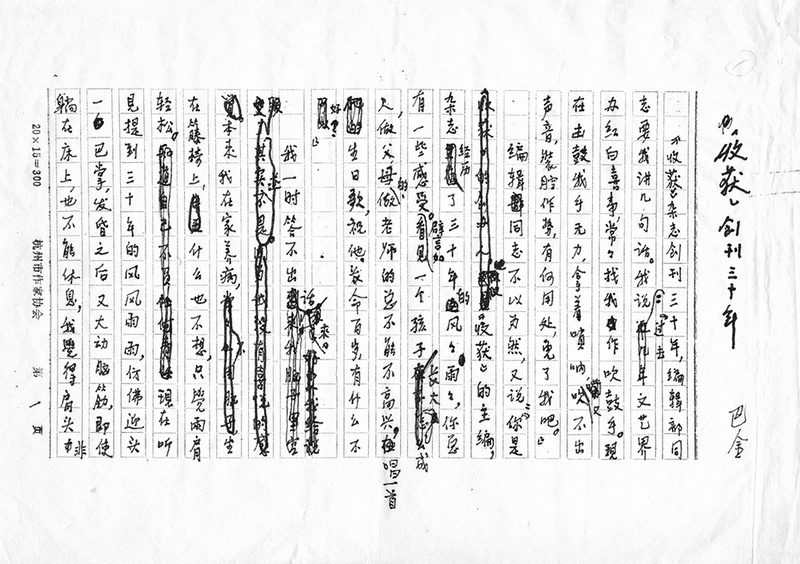 《收获》创刊三十年
巴金
《收获》杂志创刊三十年，编辑部同
志要我讲几句话。我说：“过去几年文艺界
办红白喜事，常々找我作吹鼓手。现
在击鼓我手无力，拿着唢呐又吹不出
声音，装腔作势，有何用处，免了我吧。”
编辑部同志不以为然，又说：“你是
《收获》的主编，
杂志经历了三十年的风々雨々，你总
有一些感受。譬如看见一个孩子长大成
人，做父母的做老师的总不能不高兴，唱一首
生日歌，祝他长命百岁，有什么不
好？”
我一时答不出话来。
本来我在家养病，坐
在藤椅上，什么也不想，只觉两肩
轻松。现在听
见提到三十年的风风雨雨，仿佛迎头
一巴掌，发昏之后又大动脑筋，即使
躺在床上，也不能休息，我觉得肩头
20×15=300 杭州市作家协会 第 1 页